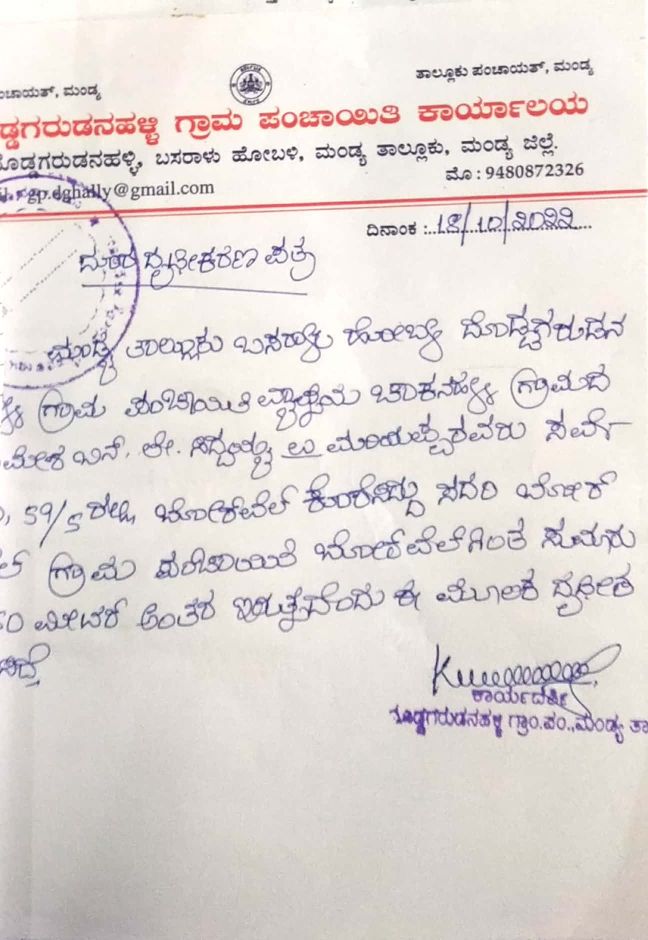 ಪಂಚಾಯತ್, ಮಂಡ್ಯ
ತಾಲ್ಲೂಕು ಪಂಚಾಯತ್, ಮಂಡ್ಯ
ಡ್ಡಗರುಡನಹಳ್ಳಿ ಗ್ರಾಮ ಪಂಚಾಯಿತಿ ಕಾರ್ಯಾಲಯ
ದೊಡ್ಡಗರುಡನಹಳ್ಳಿ, ಬಸರಾಳು ಹೋಬಳಿ, ಮಂಡ್ಯ ತಾಲ್ಲೂಕು, ಮಂಡ್ಯ ಜಿಲ್ಲೆ.
gp.dghally@gmail.com
ಮೊ : 9480872326
ದಿನಾಂಕ :
ದೃಢೀಕರಣ ಪತ್ರ
ಮಂಡ್ಯ ತಾಲ್ಲೂಕು ಬಸರಾಳು ಹೋಬಳಿ ದೊಡ್ಡಗರುಡನ
ಗ್ರಾಮ ಪಂಚಾಯಿತಿ ವ್ಯಾಪ್ತಿಯ ಚಾಕನಹಳ್ಳಿ ಗ್ರಾಮದ
ಲೇ. ಸಿದ್ದಯ್ಯ ರವರು ಸರ್ವೆ
59/5 ರಲ್ಲಿ ಬೋರ್‌ವೆಲ್ ಸದರಿ ಬೋರ್
ಗ್ರಾಮ ಪಂಚಾಯಿತಿ ಬೋರ್‌ವೆಲ್‌ಗಿಂತ ಸುಮಾರು
ಮೀಟರ್ ಅಂತರ ಇರುತ್ತದೆಂದು ಈ ಮೂಲಕ ದೃಢೀಕ
ಸಿದೆ
ಕಾರ್ಯದರ್ಶಿ
ದೊಡ್ಡಗರುಡನಹಳ್ಳಿ ಗ್ರಾಂ.ಪಂ.,ಮಂಡ್ಯ ತಾ